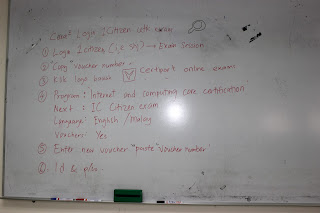 Cara² Login ICitizen cth exam
① Login Icitizen (1,2 ) → Exam Session
② "Copy" voucher number
③ Klik logo bawah Certiport online exam
④ Program : Internet and computing core certification
Next : IC Citizen exam
Language : English / Malay
Vouchers : Yes
⑤ Enter new voucher "paste" voucher number'
⑥ Id & p/w